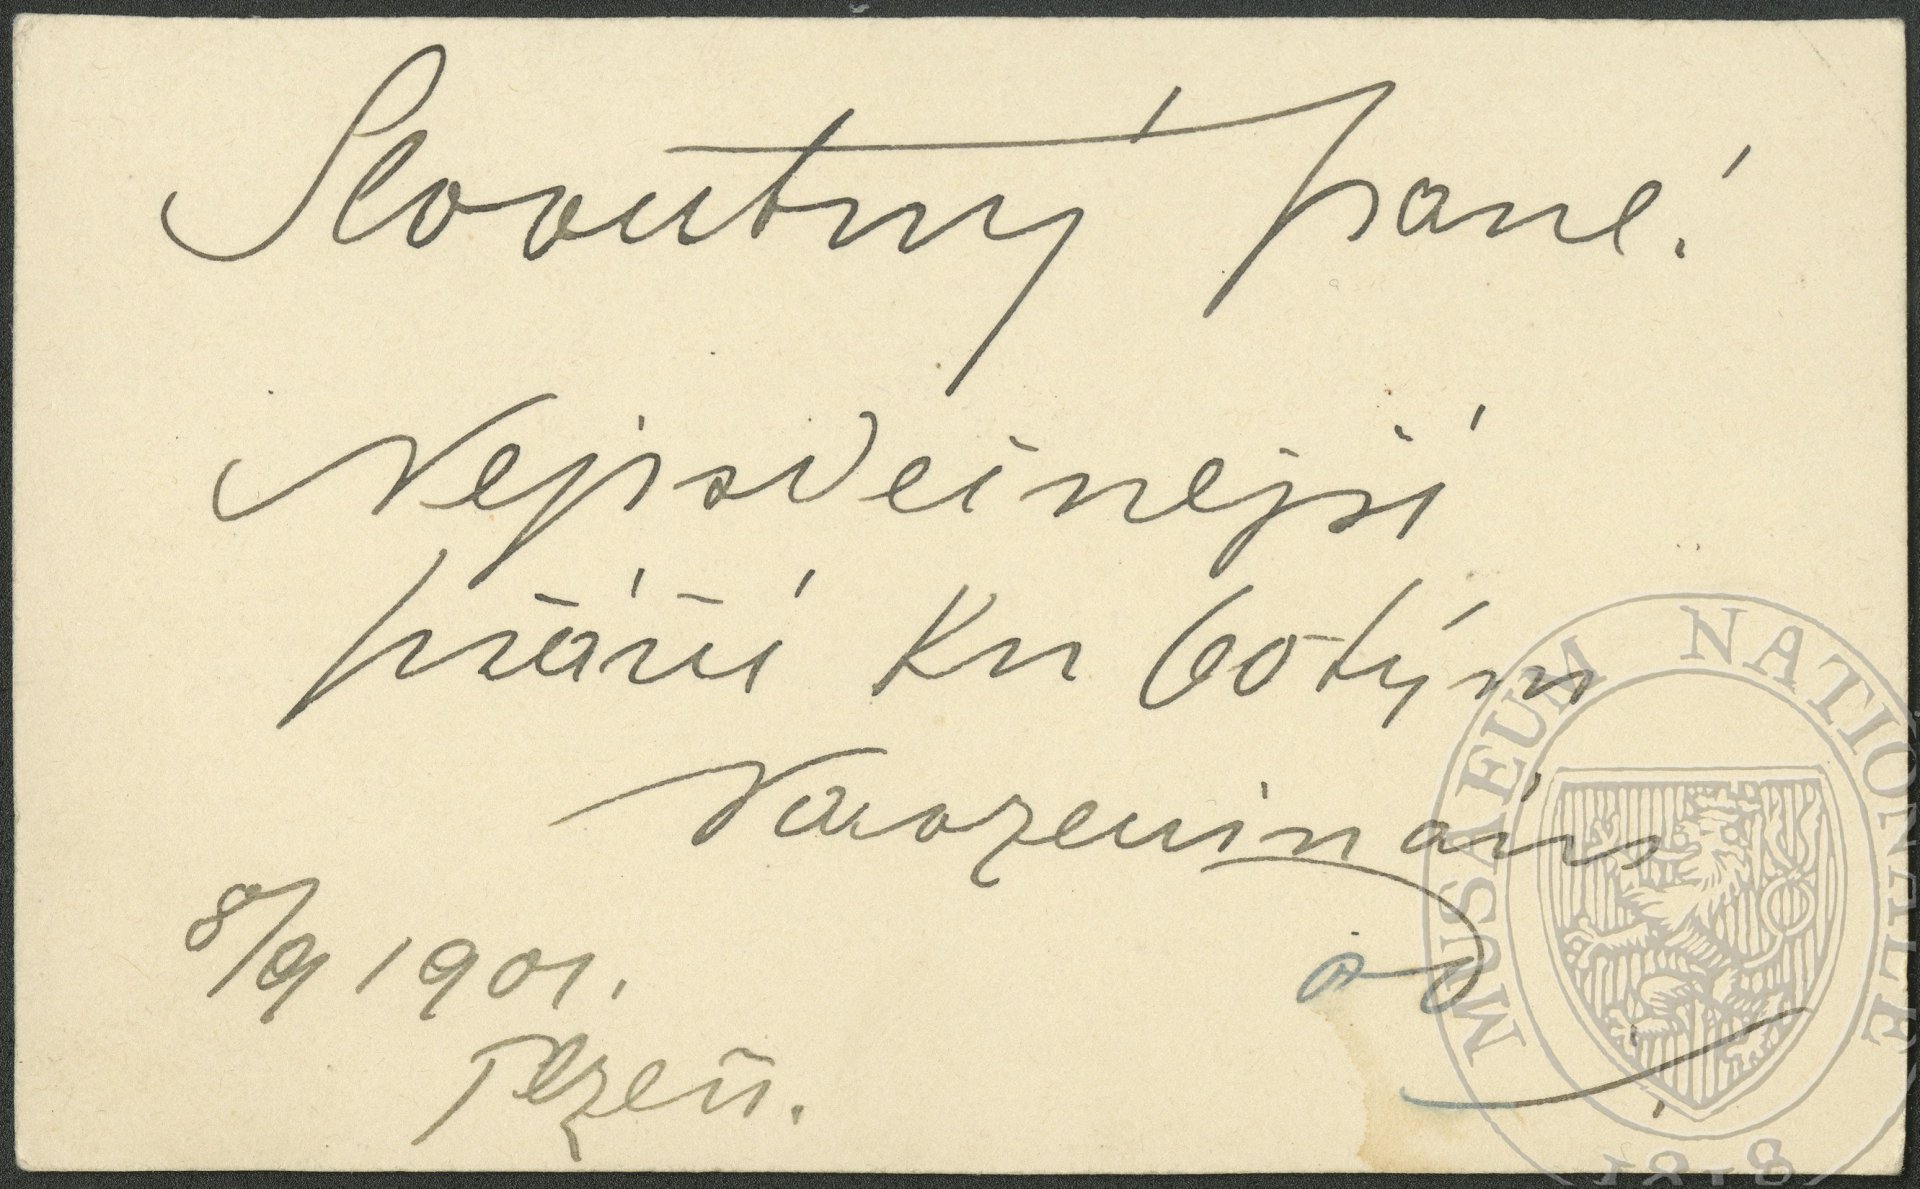 Slovutný pane!
Nejsrdečnejší
přání Ku 60tým
Narozeninám
8/9 1901.
Plzeň.
MUSAEUM NATIONALE
1818